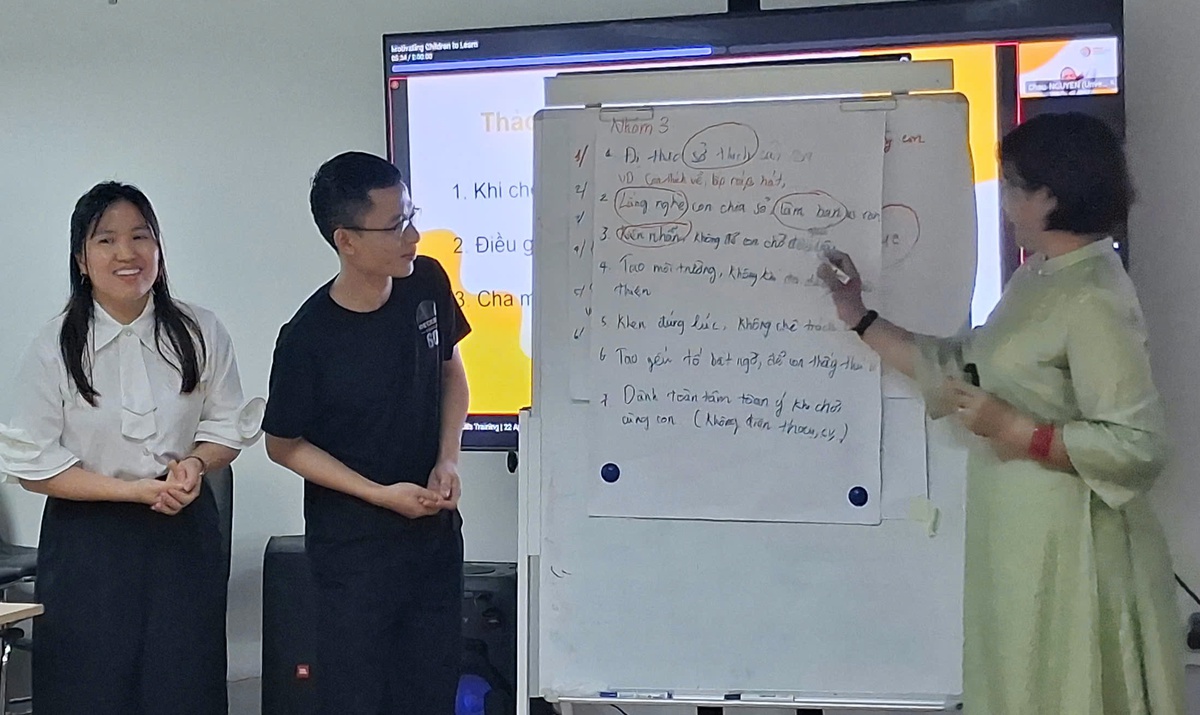 Motivating Children to Learn
Thảo
1. Khi ch
2. Điều g
3. Cha m
Training | 22 A
Chau-NGUYEN (Unive...
con
Nhóm 3
1/
2/
4/
5/
6/
Đi theo sở thích của con
VD: Con thích vẽ, lắp ráp, hát,
2. Lắng nghe con chia sẻ, làm bạn với con
3. Kiên nhẫn, không để con chờ
4. Tạo môi trường, không
thiện
5. Khen đúng lúc, không chê trách
6. Tạo yếu tố bất ngờ, để con thấy thú
7. Dành toàn tâm toàn ý khi chơi
cùng con (không điện thoại, )
JBL